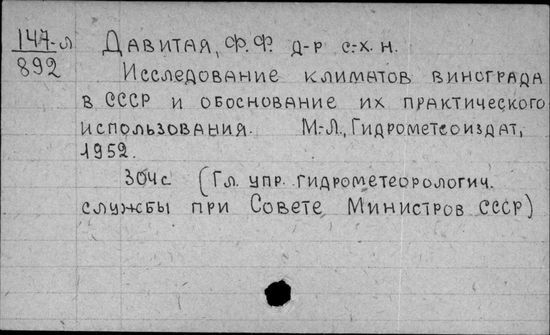 147-л Давитая, Ф.Ф. д-р с.-х. н.
892
Исследование климатов винограда
в СССР и обоснование их практического
использования. М.-Л., Гидрометеоиздат,
1952.
304с (Гл. упр. гидрометеорологич.
службы при Совете Министров СССР)